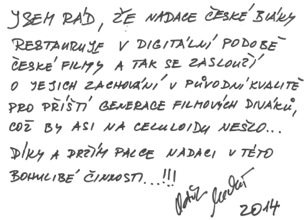 JSEM RÁD, ŽE NADACE ČESKÉ BIJÁKY
RESTAURUJE V DIGITÁLNÍ PODOBĚ
ČESKÉ FILMY A TAK SE ZASLOUŽÍ
O JEJICH ZACHOVÁNÍ V PŮVODNÍ KVALITĚ
PRO PŘÍŠTÍ GENERACE FILMOVÝCH DIVÁKŮ,
COŽ BY ASI NA CELULOIDU NEŠLO...
DÍKY A DRŽÍM PALCE NADACI V TÉTO
BOHULIBÉ ČINNOSTI...!!!
2014